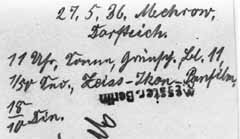 27. 5. 36. Mechow,
Dorfteich.
11 Uhr, Sonne, Grünfil., Bl. 11,
1/50 Sek., Zeiss-Ikon-Panfilm,
18/10 Din.
Berlin